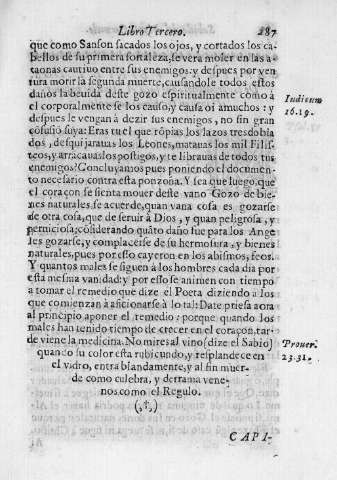 Libro Tercero. 287
que como Sanson sacados los ojos, y cortados los ca-
bellos de su primera fortaleza, se vera moler en las a-
taonas cautiuo entre sus enemigos: y despues por ven
tura morir la segunda muerte, causandole todos estos
daños la beuida deste gozo espiritualmente como à
el corporalmente se los causo, y causa oi amuchos: y
despues le vengan à dezir sus enemigos, no sin gran
cõfusiõ suya: Eras tu el que rõpias los lazos tresdobla
dos, desquijarauas los Leones, matauas los mil Filis-
teos, y arrãcauas los postigos, y te librauas de todos tus
enemigos? Concluyamos pues poniendo el documen-
to necesario contra esta ponzoña. Y sea que luego, que
el coraçon se sienta mouer deste vano Gozo de bie-
nes naturales, se acuerde, quan vana cosa es gozarse
de otra cosa, que de seruir à Dios, y quan peligrosa, y
perniciosa; cõsiderando quãto daño fue para los Ange
les gozarse, y complacerse de su hermosura, y bienes
naturales, pues por esto cayeron en los abismos, feos.
Y quantos males se siguen à los hombres cada dia por
esta mesma vanidad: y por esso se animen con tiempo
a tomar el remedio que dize el Poeta diziendo à los
que comienzan à aficionarse à lo tal: Date priesa aora
al principio aponer el remedio: porque quando los
males han tenido tiempo de crecer en el coraçon, tar-
de viene la medicina. No mires al vino (dize el Sabio)
quando su color esta rubicundo, y resplandece en
el vidro, entra blandamente, y al fin muer-
de como culebra, y derrama vene-
nos como el Regulo.
(,†,)
CAPI-
Iudicum
16.19.
Prouer.
23.31.